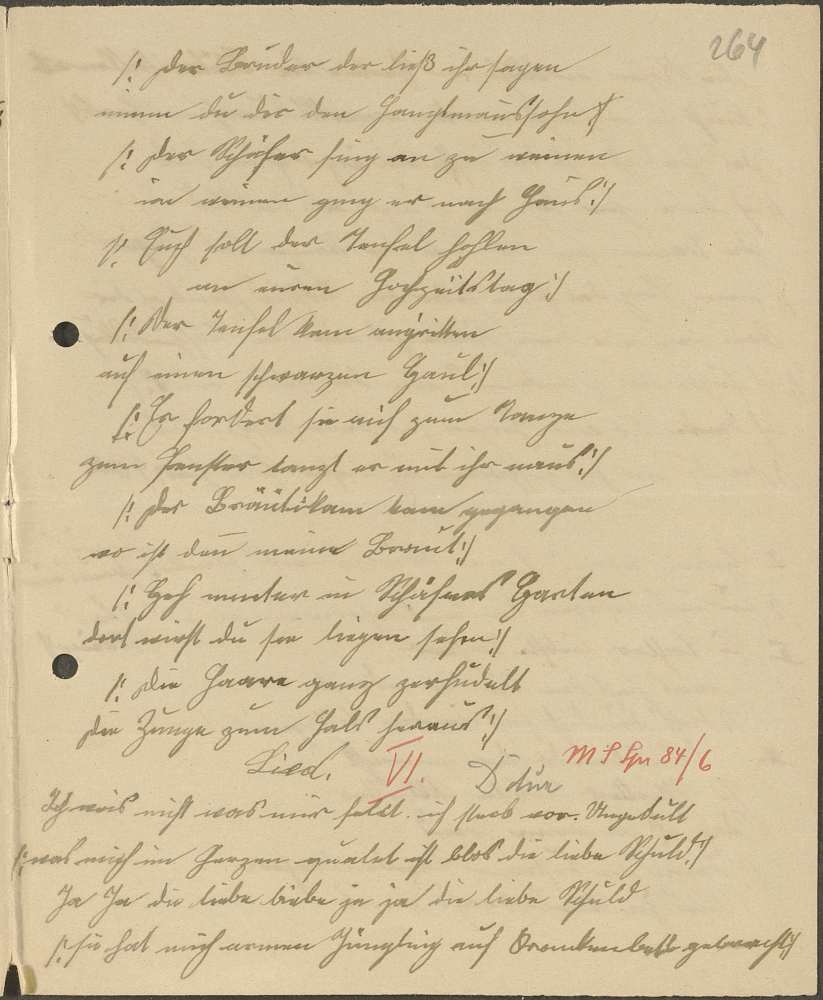 264
/: Der Bruder der ließ ihr sagen
nimm du dir den Hauptmannssohn :/
/: Der Schäfer fing an zu weinen
in weinen ging er nach Haus :/
/: Euch soll der Teufel hohlen
an euren Hochzeitstag :/
/: Der Teufel kam angeritten
auf einen schwarzen Gaul :/
/: Er fordert sie auf zum Tanze
zum Fenster tanzt er mit ihr naus :/
/: Der Bräutikam kam gegangen
wo ist den meine Braut :/
/: Geh nunter in Schäfers Garten
dort wirst du sie liegen sehn :/
/: Die Haare ganz zerhudelt
die Zunge zum Hals heraus :/
Lied. VI. D dur 84/6
Ich weis nicht was mir fehlt ich sterb vor Ungedult
/: was mich im Herzen quälet ist blos die liebe Schuld :/
Ja Ja die liebe liebe ja ja die liebe Schuld
/: sie hat mich armen Jüngling auf Krankenbett gebracht :/